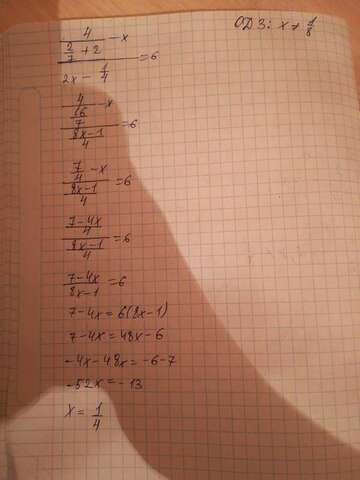 ОДЗ: x ≠ 1/8
(4/(2/7 + 2) - x)/(2x - 1/4) = 6
(4/(16/7) - x)/((8x-1)/4) = 6
(7/4 - x)/((8x-1)/4) = 6
((7-4x)/4)/((8x-1)/4) = 6
(7-4x)/(8x-1) = 6
7-4x = 6(8x-1)
7-4x = 48x-6
-4x-48x = -6-7
-52x = -13
x = 1/4